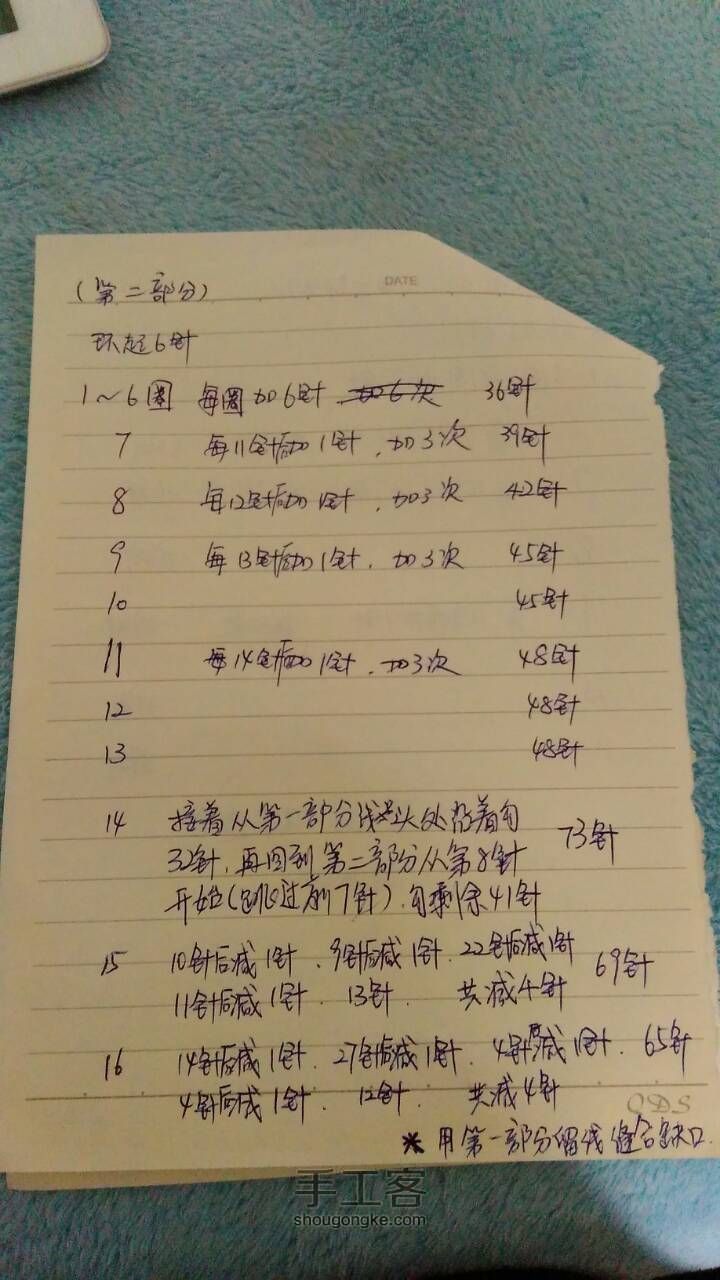 DATE
(第二部分)
环起6针
1～6圈 每圈加6针 加6次 36针
7 每11针后加1针，加3次 39针
8 每12针后加1针，加3次 42针
9 每13针后加1针，加3次 45针
10 45针
11 每14针后加1针，加3次 48针
12 48针
13 48针
14 接着从第一部分线头处沿着勾
32针，再回到第二部分从第8针 73针
开始(跳过前7针)，勾剩余41针
15 10针后减1针、9针后减1针、22针后减1针 69针
11针后减1针、13针、 共减4针
16 14针后减1针、27针后减1针、4针后减1针、65针
4针后减1针、12针、 共减4针
GDS
* 用第一部分留线缝合缺口.
手工客
shougongke.com